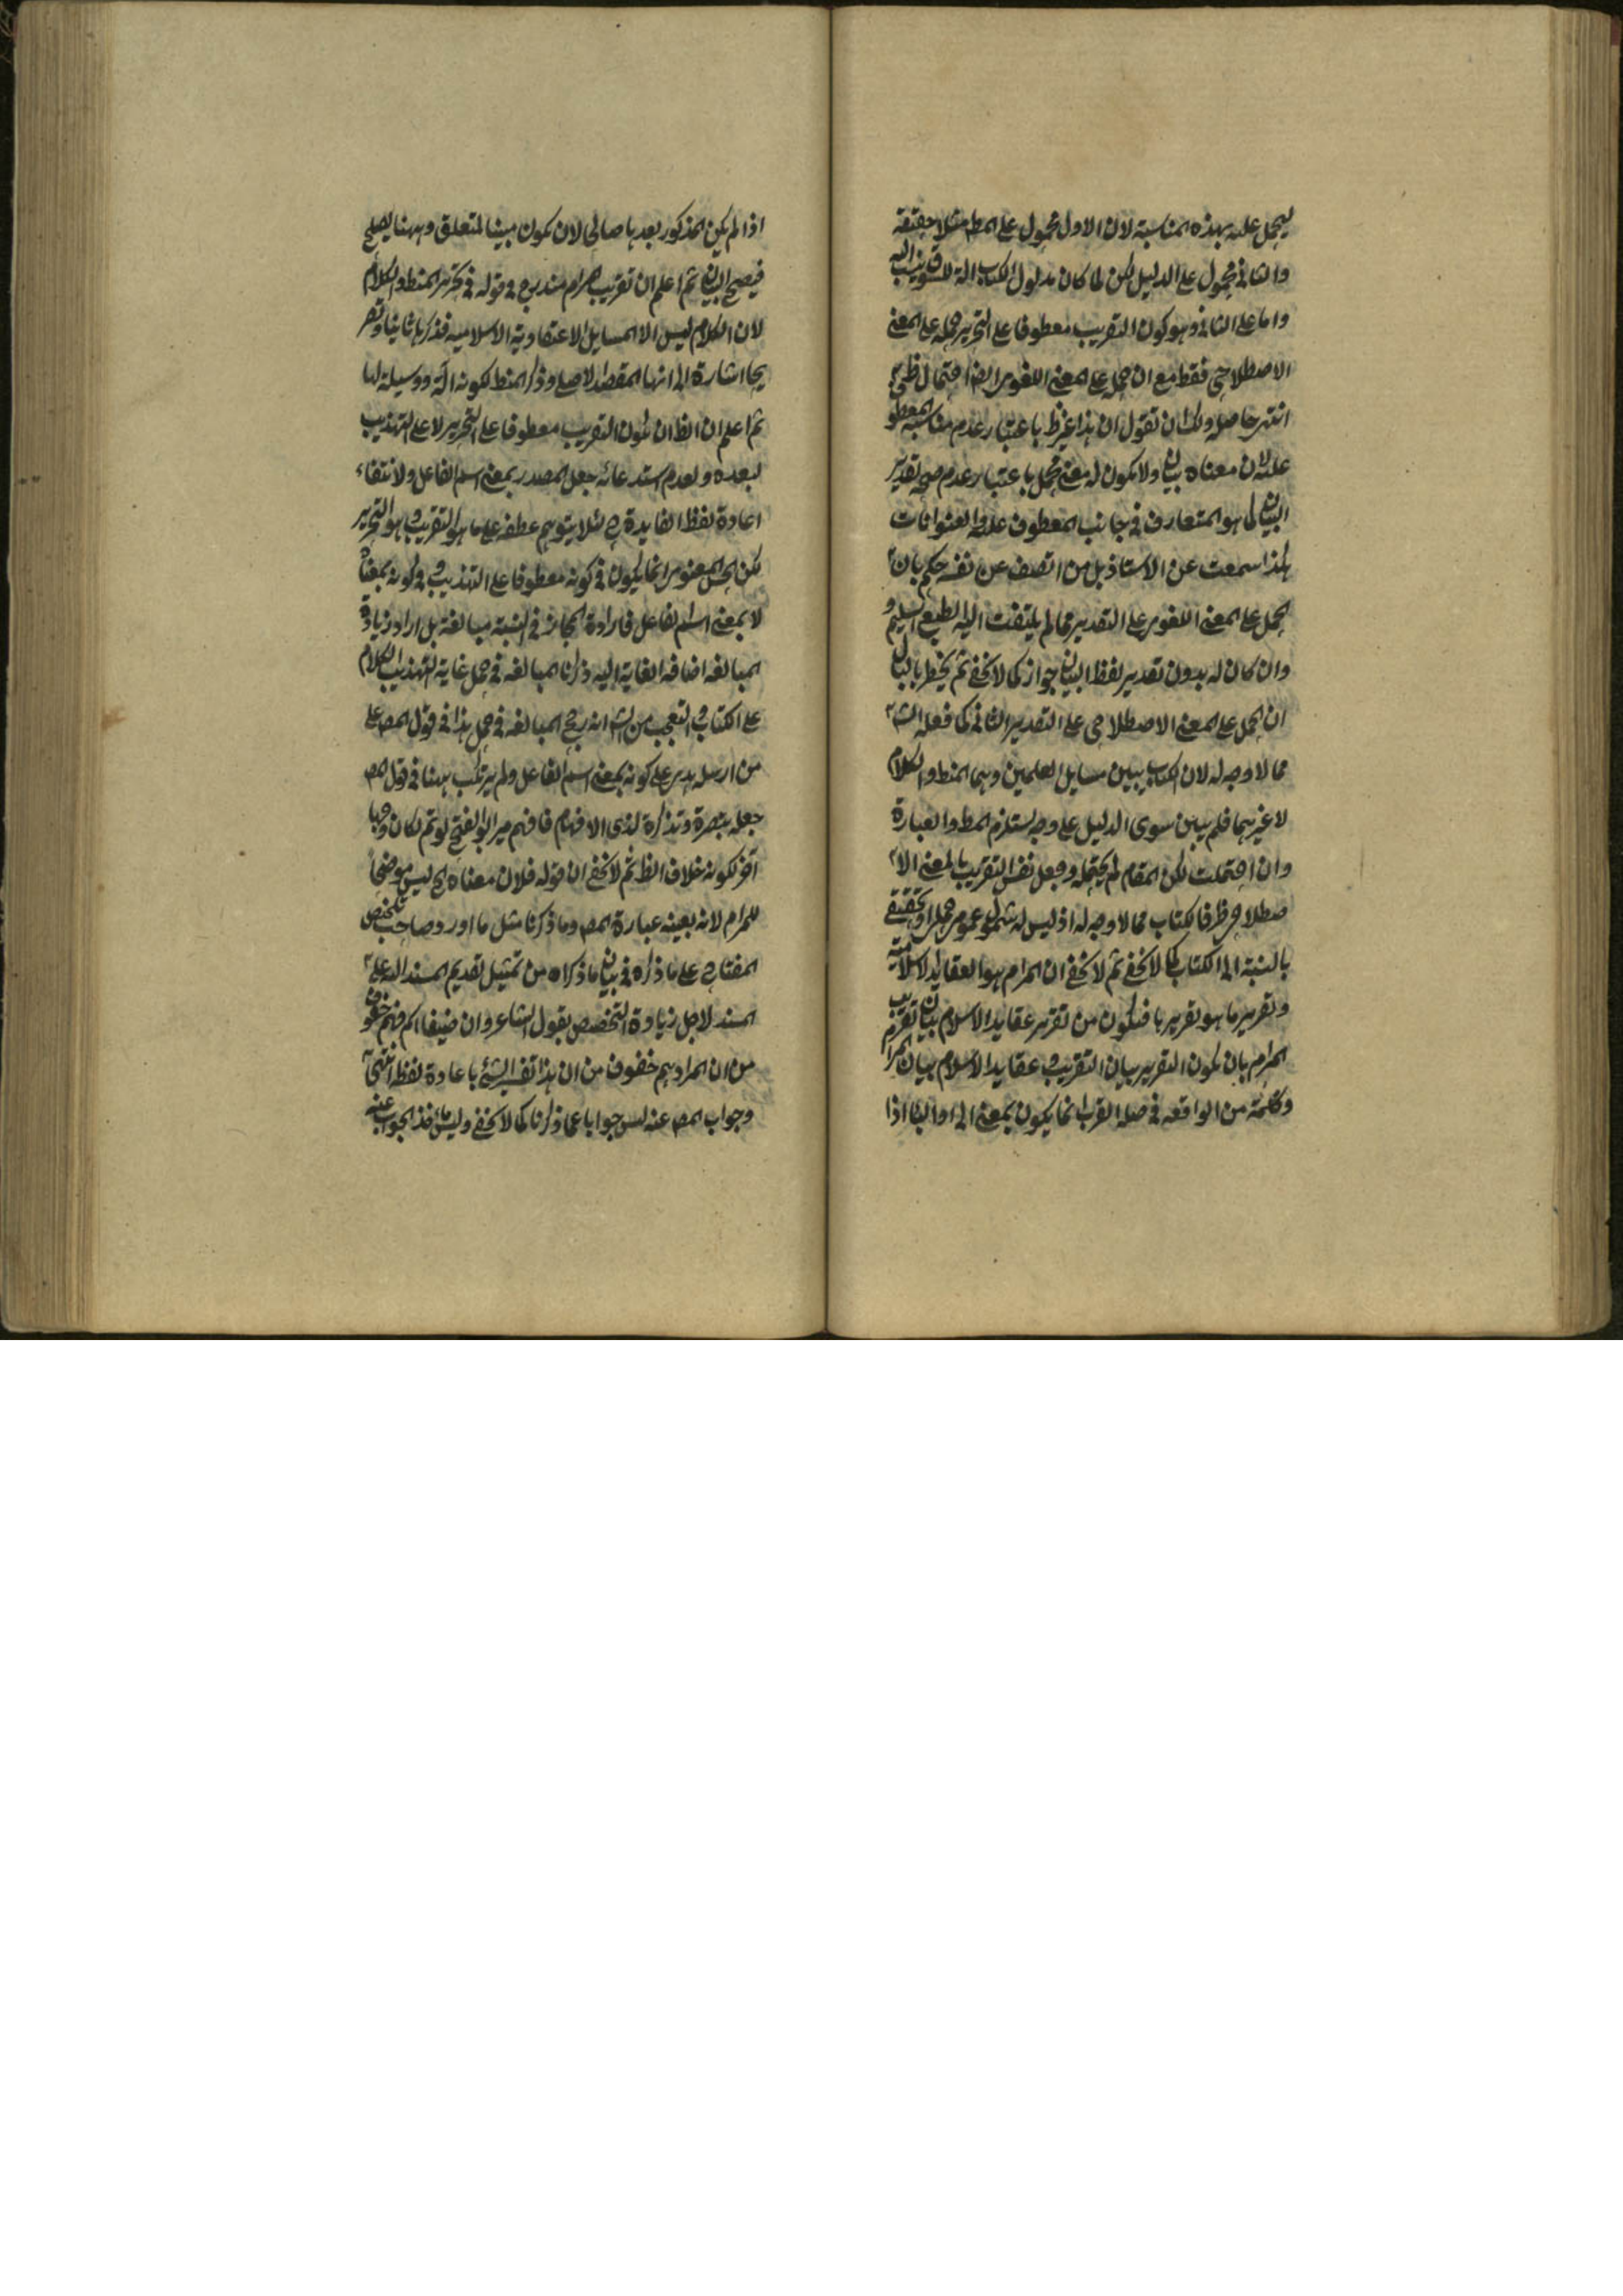 يحمل عليه بهذه المناسبة لان الاول محمول على المط مثلا حقيقة
والثانى محمول على الدليل لكن لما كان مدلول الكتاب الة
واما على الثانى وهو كون التقريب معطوفا على التحرير حمله على المعنى
الاصطلاحى فقط مع ان حمله على المعنى اللغوى ايضا احتمال ظ
انتهى حاصله ولك ان تقول ان هذا غير ظ باعتبار عدم مناسبة المعطو
عليه لان معناه بيان ولا يكون له معنى محمل باعتبار عدم صحة تقدير
البيان كما هو المتعارف فى جانب المعطوف عليه والعنوانات
هكذا سمعت عن الاستاذ بل من انصف عن نفسه حكم بان
الحمل على المعنى اللغوى على التقدير مما لم يلتفت اليه الطبع السليم و
وان كان له بدون تقدير لفظ البيان جواز كما لا يخفى ثم يخطر بالبال
ان الحمل على المعنى الاصطلاحى على التقدير الثانى كما فعله الشا
مما لا وجه له لان الكتاب يبين مسايل العلمين وهما المنط والكلام
لا غيرهما فلم يبين سوى الدليل على وجه يستلزم المط والعبارة
وان احتملت لكن المقام لم يحتمله وجعل نفس التقريب بالمعنى الا
صطلاحى ظرفا لكتاب مما لا وجه له اذ ليس له شمول عمومى حملى او تحقيقى
بالنسبة الى الكتاب كما لا يخفى ثم لا يخفى ان المرام هو العقايد الاسلامية
وتقرير ما هو تقريرها فيكون من تقرير عقايد الاسلام بيان تقريب
المرام بان يكون التقرير بيان التقريب و عقايد الاسلام بيان المرام
وكلمة من الواقعه فى صلة القرب انما يكون بمعنى الى او الباء اذا
اذا لم يكن المذكور بعدها صالحا لان يكون مبينا لمتعلق وههنا يصلح
فيصح البيان ثم اعلم ان تقريب المرام مندرج فى قوله فى تحرير المنط والكلام
لان الكلام ليس الا المسايل الاعتقادية الاسلامية فذكرها ثانيا وتصر
يحا اشارة الى انها المقصد الاصلى وذكر المنط لكونه الة ووسيلة لها
ثم اعلم ان الظ ان يكون التقريب معطوفا على التحرير لا على التهذيب
لبعده ولعدم استدعائه جعل المصدر بمعنى اسم الفاعل ولانتفاء
اعادة لفظ الغاية ح لئلا يتوهم عطفه على ما هو التقريب و هو التحرير
لكن الحسن المعنوى انما يكون فى كونه معطوفا على التهذيب و كونه بمعناه
لا بمعنى اسم الفاعل فارادة المجاز فى النسبة مبالغة بل اراد زيادة
المبالغه اضافه الغاية اليه ذكرنا المبالغه فى حمل غاية تهذيب الكلام
على الكتاب والتعجب من الشا انه رجح المبالغه فى حمل هذا فى قول المص على
من ارسله هدى على كونه بمعنى اسم الفاعل ولم يرتكب ههنا فى قول المص
جعله تبصرة وتذكرة لذى الافهام فافهم مير ابو الفتح لو تم لكان وجها
اخر لكونه خلاف الظ ثم لا يخفى ان قوله فلان معناه الخ ليس موضحا
للمرام لانه بعينه عبارة المص وما ذكرنا مثل ما اورد صاحب تلخيص
المفتاح على ما ذكره فى بيان ما ذكراه من تمثيل تقديم المسند اليه على
المسند لاجل زيادة التخصيص بقول الشاعر وان ضيفا الم فهم خفوف
من ان المراد هم خفوف من ان هذا تفسير الشئ باعادة لفظه انتهى
وجواب المص عنه ليس جوابا عما ذكرنا كما لا يخفى الجواب عنه